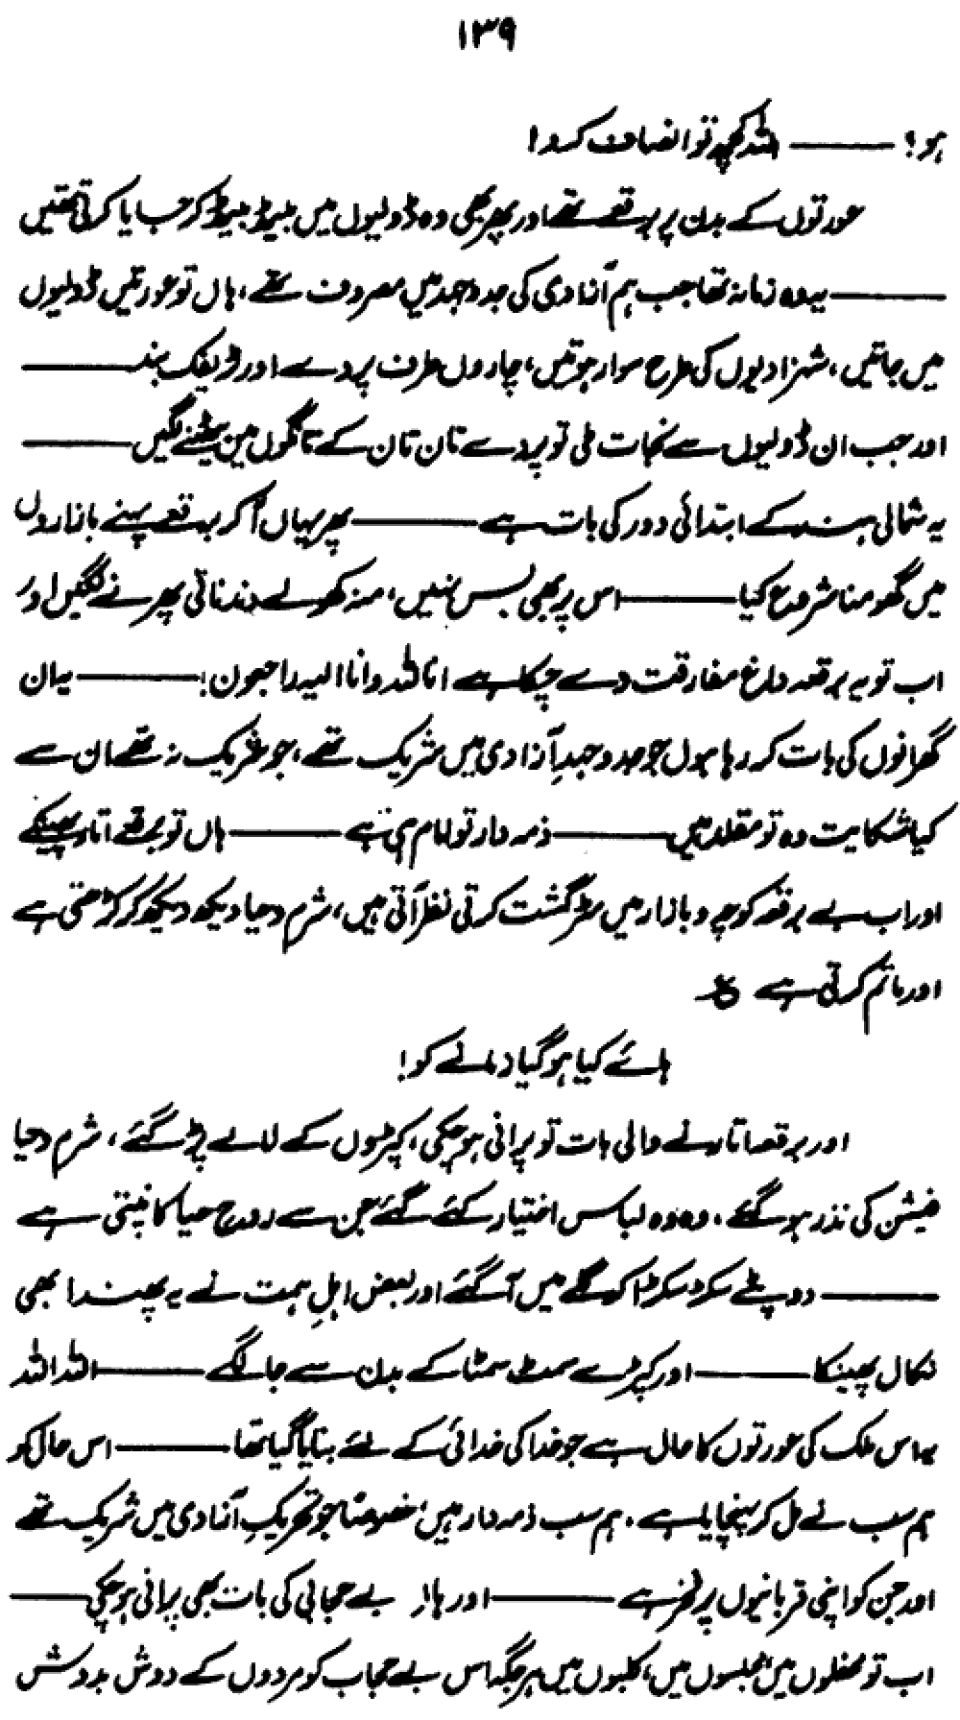 ۱۳۹
ہو؟ ——— للہ کچھ تو انصاف کرو!
عورتوں کے بدن پر برقعے تھے اور پھر بھی وہ ڈولیوں میں بیٹھ بیٹھ کر جایا کرتی تھیں
——— یہ وہ زمانہ تھا جب ہم آزادی کی جدوجہد میں مصروف تھے، ہاں تو عورتیں ڈولیوں
میں جاتیں، شہزادیوں کی طرح سوار ہوتیں، چاروں طرف پردے اور ٹریفک بند ———
اور جب ان ڈولیوں سے نجات ملی تو پردے تان تان کے تانگوں میں بیٹھنے لگیں ———
یہ شمالی ہند کے ابتدائی دور کی بات ہے ——— پھر یہاں آ کر برقعے پہنے بازاروں
میں گھومنا شروع کیا ——— اس پر بھی بس نہیں، منہ کھولے دندناتی پھرنے لگیں اور
اب تو یہ برقعہ داغ مفارقت دے چکا ہے انا للہ وانا الیہ راجعون! ——— یہ ان
گھرانوں کی بات کر رہا ہوں جو جدوجہدِ آزادی میں شریک تھے، جو شریک نہ تھے ان سے
کیا شکایت وہ تو مقلد ہیں ——— ذمہ دار تو امام ہی ہے ——— ہاں تو برقعے اتار پھینکے
اور اب بے برقعہ کوچہ و بازار میں مٹر گشت کرتی نظر آتی ہیں، شرم و حیا دیکھ دیکھ کر کڑھتی ہے
اور ماتم کرتی ہے ع
ہائے کیا ہو گیا زمانے کو!
اور برقعہ اتارنے والی بات تو پرانی ہو چکی، کپڑوں کے لالے پڑ گئے، شرم و حیا
فیشن کی نذر ہو گئے، وہ وہ لباس اختیار کئے گئے جن سے روحِ حیا کانپتی ہے
——— دوپٹے سکڑ سکڑا کر گلے میں آ گئے اور بعض اہلِ ہمت نے یہ پھندا بھی
نکال پھینکا ——— اور کپڑے سمٹ سمٹا کے بدن سے جا لگے ——— اللہ اللہ
یہ اس ملک کی عورتوں کا حال ہے جو خدا کی خدائی کے لئے بنایا گیا تھا ——— اس حال کو
ہم سب نے مل کر پہنچایا ہے، ہم سب ذمہ دار ہیں خصوصاً جو تحریکِ آزادی میں شریک تھے
اور جن کو اپنی قربانیوں پر فخر ہے ——— اور ہاں بے حجابی کی بات بھی پرانی ہو چکی ———
اب تو محفلوں میں، مجلسوں میں، کلبوں میں ہر جگہ اس بے حجاب کو مردوں کے دوش بدوش